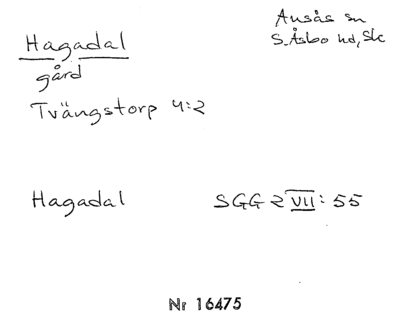 Hagadal
Ausås sn
S.Åsbo hd, Sk
gård
Tvängstorp 4:2
Hagadal SGG 2 VII: 55
Nr 16475